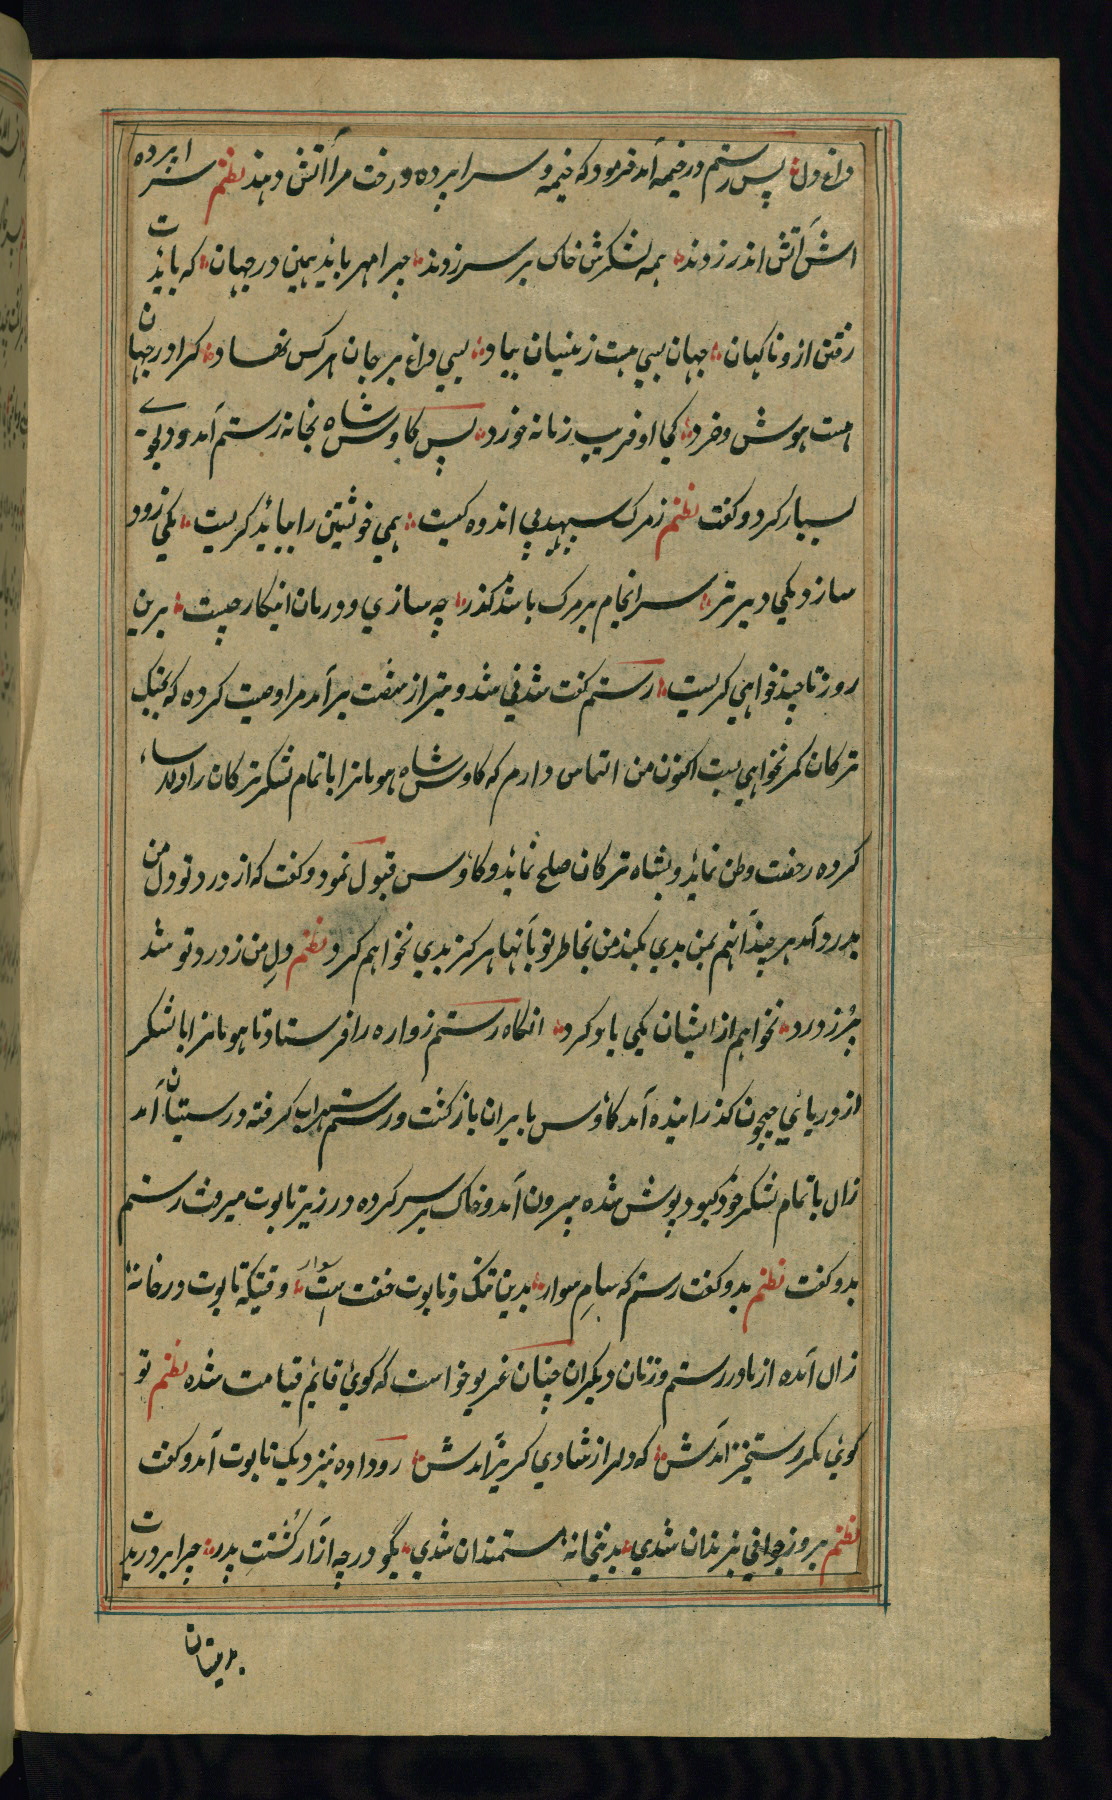 داغ دل پس رستم در خیمه آمد فرمود که خیمه و سراپرده و رخت مرا آتش دهند نظم سراپرده
اش آتش اندر زدند همه لشکرش خاک بر سر زدند چرا مهر باید همین در جهان که بایدت
رفتن ازو ناکهان جهان بسی هست زینسان بیاد بسی داغ بر جان هر کس نهاد کرا در جهان
هست هوش و خرد کجا او فریب زمانه خورد پس کاوس شاه بخانه رستم آمد و دلجوے
بسیار کرد و کفت نظم زمرک سپهبد پی اندوه کیست همی خویشتن را بباید کریست یکی زود
سازد یکی دیرتر سرانجام بر مرک باشد کذر چه سازی و درمان اینکار چیست برین
روز تا چند خواهی کریست رستم کفت شدنی شد و نیز از هفت برآمد مرا وصیت کرده که بجنک
ترکان کمر نخواهی بست اکنون من التماس دارم که کاوس شاه هومانرا با تمام لشکر ترکان را
کرده رخصت وطن نماید و بشاه ترکان صلح نماید و کاوس قبول نمود و کفت که از درد تو دل من
بدرد آمد هر چند آنهم بمن بدی بکند من بخاطر تو بآنها هرکز بدی نخواهم کرد نظم دلِ من ز درد تو شد
پُر ز درد نخواهم از ایشان یکی یاد کرد انکاه رستم زواره را فرستاد تا هومانرا با لشکر
از دریای جیحون کذرانیده آمد کاوس بایران باز کشت و رستم سهراب کرفته در سیستان آمد
زال با تمام لشکر خود کبود پوش شده بیرون آمد و خاک بر سر کرده در زیر تابوت میرفت رستم
بدو کفت نظم بدو کفت رستم که سام سوار بدین تنک و تابوت خفت است وقتیکه تابوت در خانه
زال آمده از مادر رستم و زنان دیکران چنان غریو خواست که کوئی قایم قیامت شده نظم تو
کوئی مکر رستخیز آمدش که دل را ز شادی کریز آمدش روداوه بنزدیک تابوت آمد و کفت
نظم بروز جوانی بزندان شدی بدینخانه مستمندان شدی بگو درچه از آر کُشتت پدر چرا بر دریدت
بدینسان